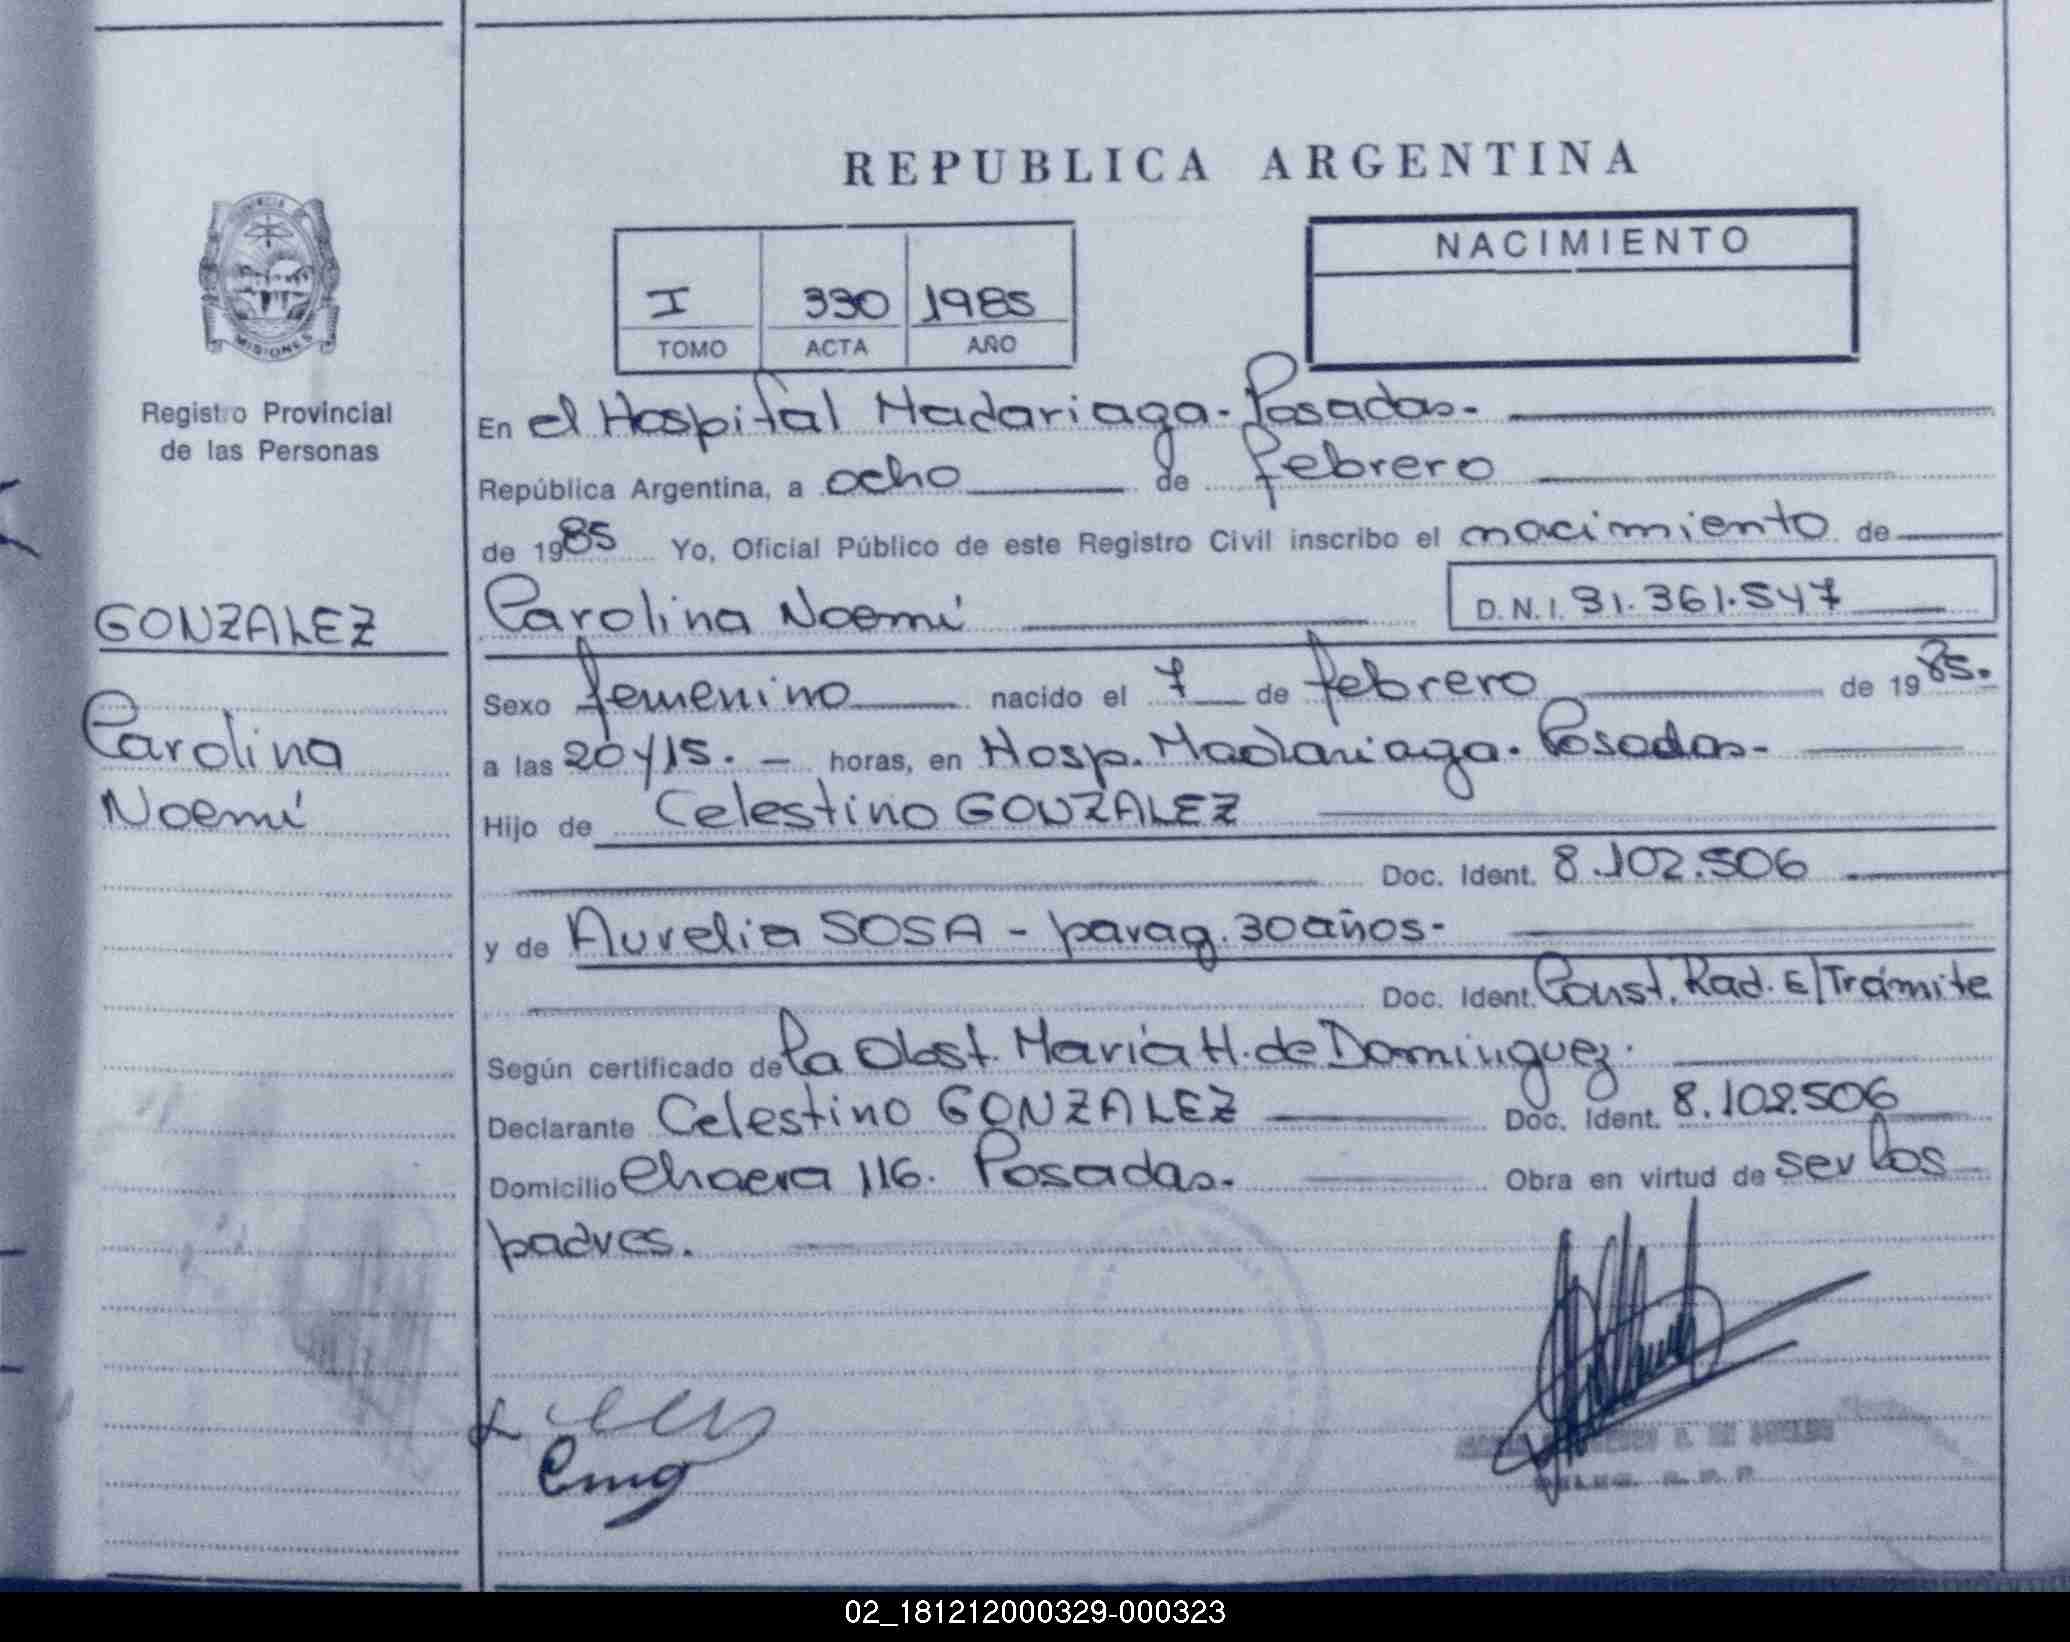 REPUBLICA ARGENTINA
NACIMIENTO
I 330 1985
TOMO ACTA AÑO
PROVINCIA
MISIONES
Registro Provincial
de las Personas
En el Hospital Madariaga - Posadas.-
República Argentina, a ocho de febrero
de 1985 Yo, Oficial Público de este Registro Civil inscribo el nacimiento de
GONZALEZ
Carolina Noemí D.N.I. 31.361.547
Sexo femenino nacido el 7 de febrero de 1985.
Carolina
a las 20 y 15. - horas, en Hosp. Madariaga. Posadas-
Noemí
Hijo de Celestino GONZALEZ
Doc. Ident. 8.102.506
y de Aurelia SOSA - parag. 30 años-
Doc. Ident. Const. Rad. E/Trámite
Según certificado de la Obst. María H. de Dominguez.
Declarante Celestino GONZALEZ Doc. Ident. 8.102.506
Domicilio Chacra 116. Posadas. Obra en virtud de ser los
padres.
02_181212000329-000323